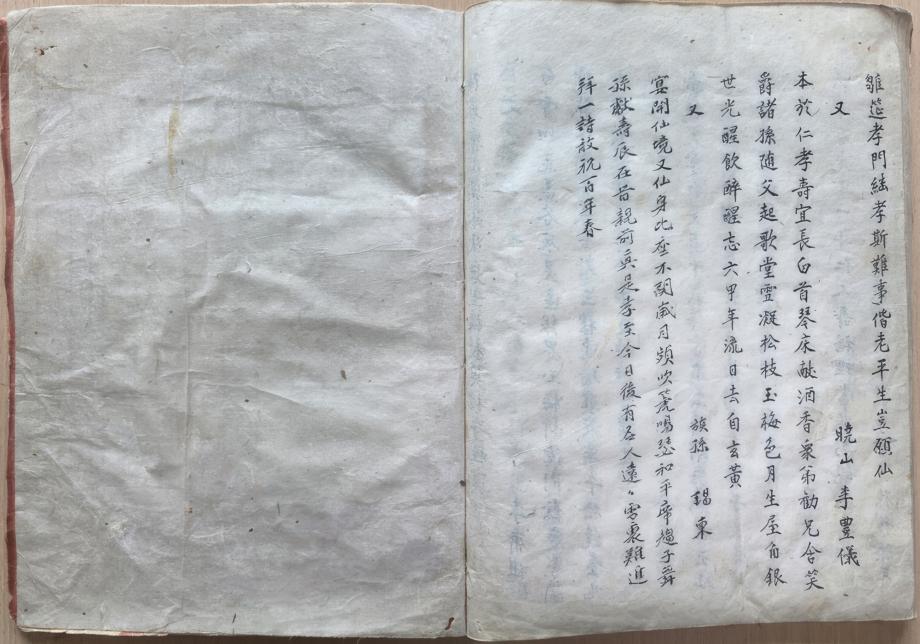 雛筵孝門繼孝斯難事偕老平生豈願仙
又 曉山 李豊儀
本於仁孝壽宜長白首琴床獻酒香衆弟勸兄含笑
爵諸孫随父起歌堂雲凝松枝玉梅色月生屋角銀
世光醒飮醉醒志六甲年流日去自玄黃
又 族孫 錫東
宴開仙境又仙身此座不關歲月頻吹篪鳴瑟和平席趨子舞
孫獻壽辰在昔親前眞是孝至今日後有名人遠々雪裏難進
拜一詩放祝百年春